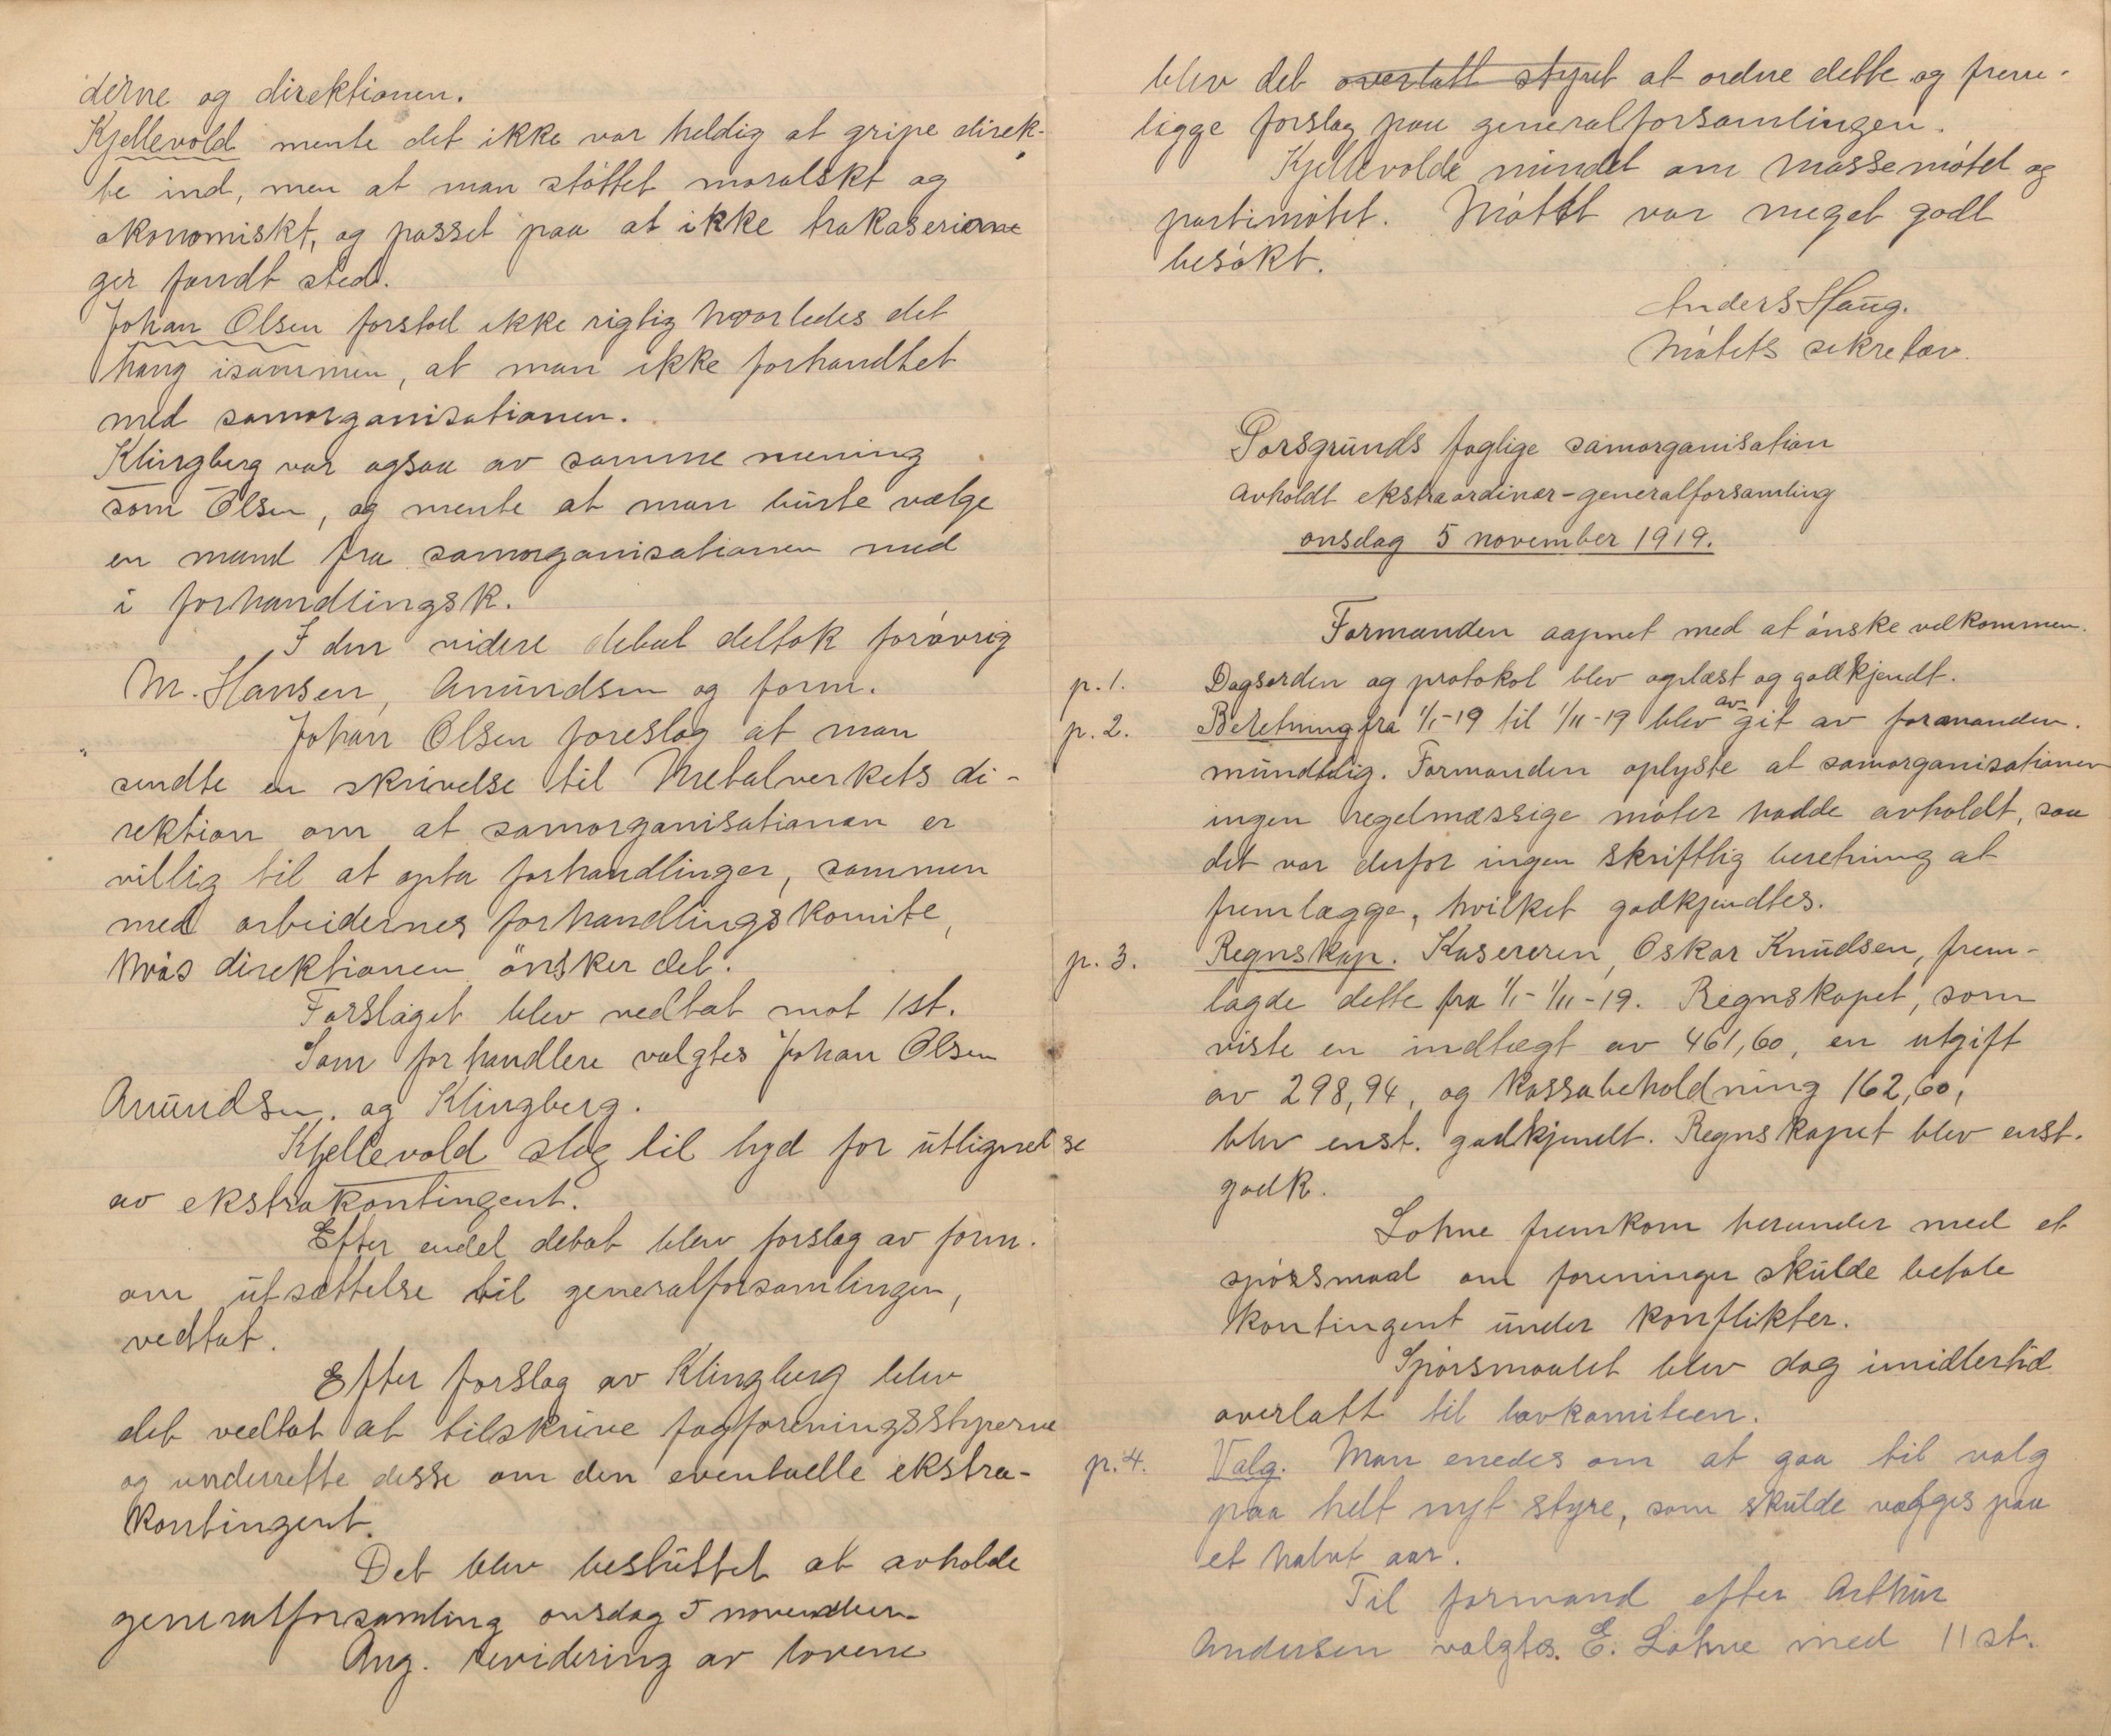 derne og direktionen.
Kjellevold mente det ikke var heldig at gripe direk-
te ind, men at man støttet moralskt og
økonomiskt, og passet paa at ikke trakaserierne
ger fandt sted.
Johan Olsen forstod ikke rigtig hvorledes det
hang isammen, at man ikke forhandlet
med samorganisationen.
Klingberg var ogsaa av samme mening
som Olsen, og mente at man burte vælge
en mand fra samorganisationen med
i forhandlingsk.
I den videre debat deltok forøvrig
M. Hansen, Anundsen og form.
Johan Olsen foreslog at man
sendte en skrivelse til Metalverkets di-
rektion om at samorganisationen er
villig til at opta forhandlinger, sammen
med arbeidernes forhandlingskomite,
hvis direktionen ønsker det.
Forslaget blev vedtat mot 1 st.
Som forhandlere valgtes Johan Olsen
Anundsen og Klingberg.
Kjellevold slog til lyd for utlignelse
av ekstrakontingent.
Efter endel debat blev forslag av form.
om utsættelse til generalforsamlingen,
vedtat.
Efter forslag av Klingberg blev
det vedtat at tilskrive fagforeningsstyrerne
og underrette disse om den eventuelle ekstra-
kontingent.
Det blev besluttet at avholde
generalforsamling onsdag 5 november
Ang. revidering av lovene
blev det overlatt styret at ordne dette og frem-
ligge forslag paa generalforsamlingen.
Kjellevolde mindet om massemøtet og
partimøtet. Møttet var meget godt
besøkt.
Anders Haug.
Møtets sekretær.
Porsgrunds faglige samorganisation
avholdt ekstraordinær-generalforsamling
onsdag 5 november 1919.
Formanden aapnet med at ønske velkommen.
p. 1. Dagsorden og protokol blev oplæst og godkjendt.
p. 2. Beretning fra 1/1-19 til 1/11-19 blev av git av formanden.
mundtlig. Formanden oplyste at samorganisationen
ingen regelmæssige møter hadde avholdt, saa
det var derfor ingen skriftlig beretning at
fremlægge, hvilket godkjendtes.
p. 3. Regnskap. Kasereren, Oskar Knudsen, frem-
lagde dette fra 1/1-1/11-19. Regnskapet, som
viste en indtægt av 461,60, en utgift
av 298,94, og kassabeholdning 162,60,
blev enst. godkjendt. Regnskapet blev enst.
godk.
Lohne fremkom herunder med et
spørssmaal om foreninger skulde betale
kontingent under konflikter.
Spørsmaalet blev dog imidlertid
overlatt til lovkomiteen.
p. 4. Valg. Man enedes om at gaa til valg
paa helt nyt styre, som skulde vælges paa
et halvt aar.
Til formand efter Arthur
Andersen valgtes E. Lohne med 11 st.